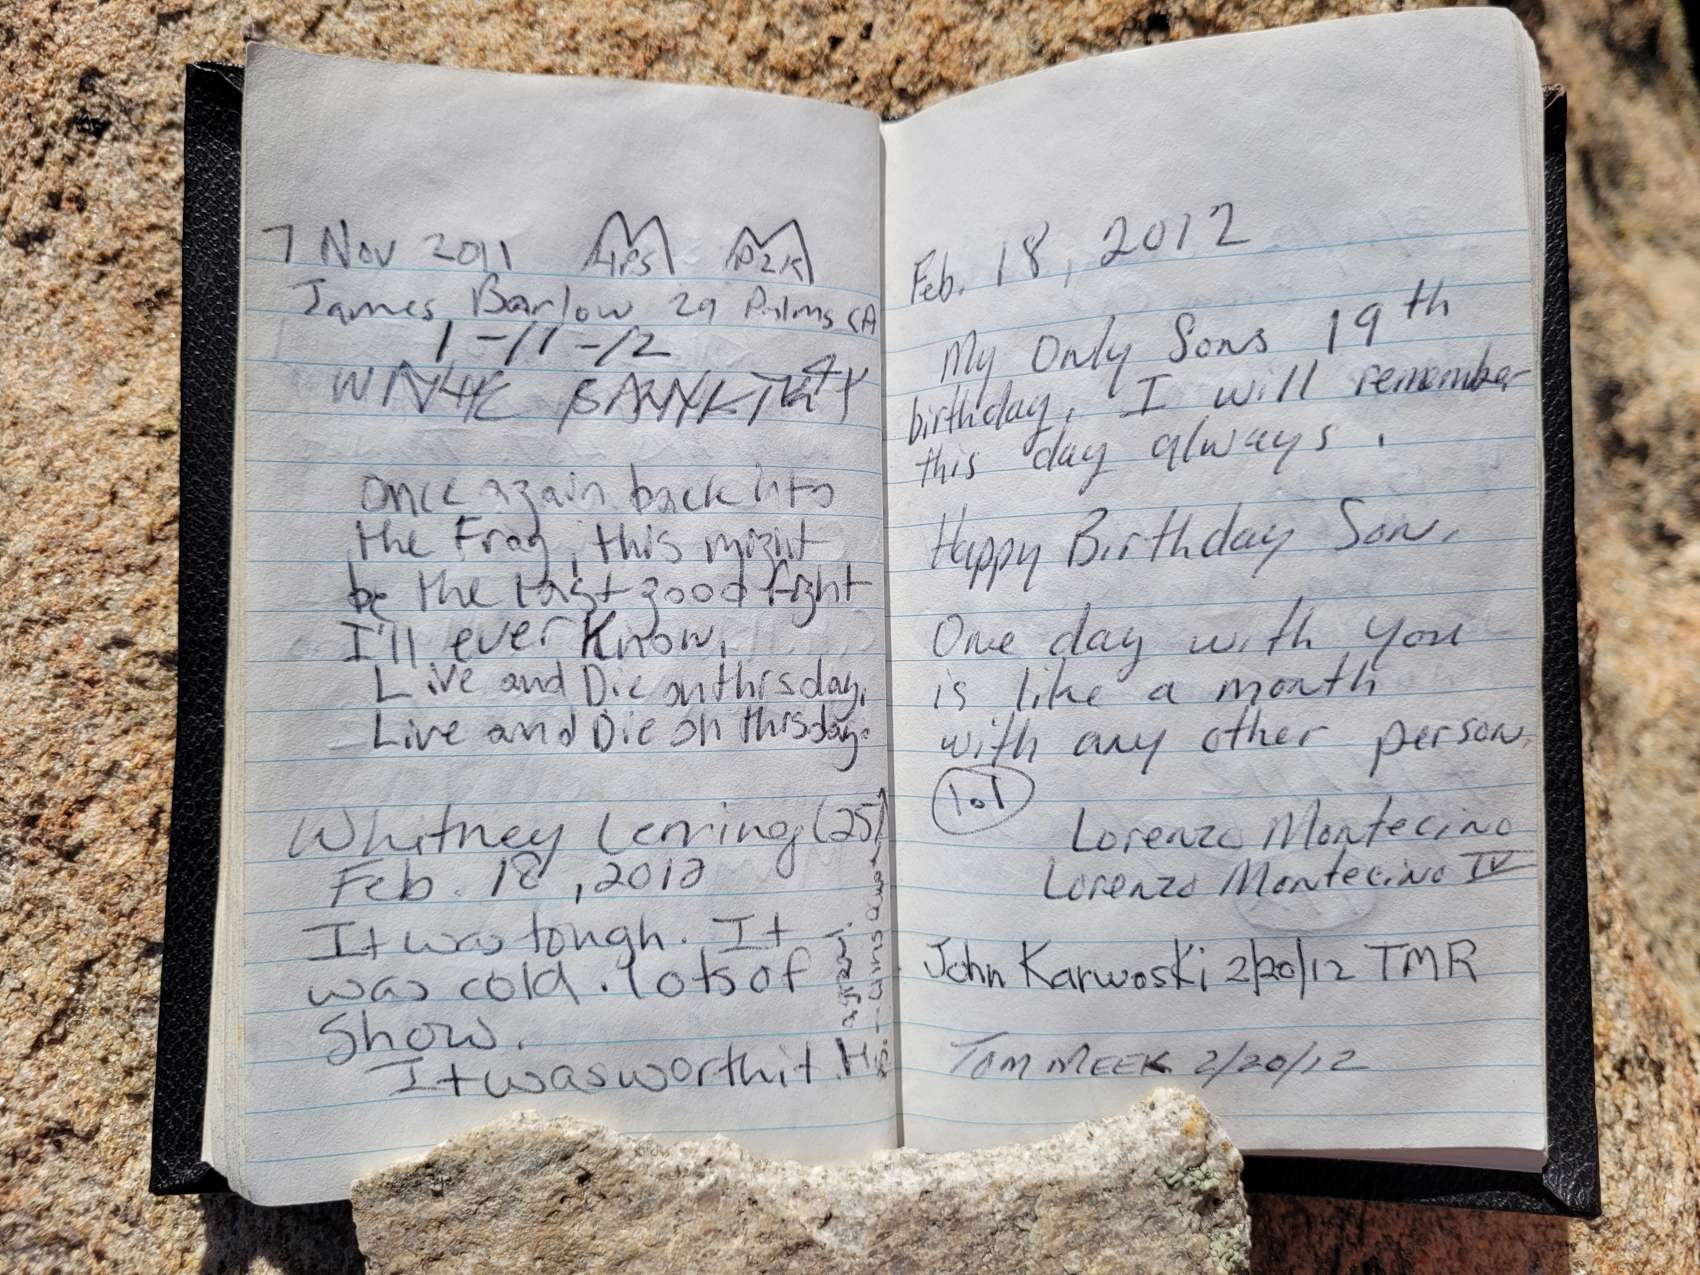 7 Nov 2011 4Ps P2K
James Barlow 29 Palms CA
1-11-12
once again back into
the Fray, this might
be the last good fight
I'll ever Know,
Live and Die on this day,
Live and Die on this day.
Whitney Lerring (25)
Feb. 18, 2012
It was tough. It
was cold. lots of
show.
It was worth it.
Feb. 18, 2012
My Only Sons 19th
birthday, I will remember
this day always.
Happy Birthday Son.
One day with you
is like a month
with any other person.
lol
Lorenzo Montecino
Lorenzo Montecino IV
John Karwoski 2/20/12 TMR
TOM MEEK 2/20/12